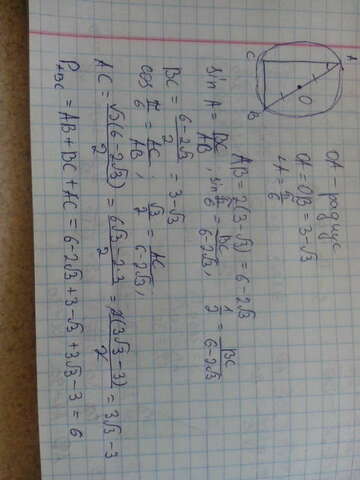 A
C
B
O
OA радиус
OA = OB = 3-√3
∠A = π/6
AB = 2(3-√3) = 6-2√3
sin A = BC/AB, sin π/6 = BC/6-2√3, 1/2 = BC/6-2√3
BC = 6-2√3/2 = 3-√3
cos π/6 = AC/AB, √3/2 = AC/6-2√3,
AC = √3(6-2√3)/2 = 6√3-2·3/2 = 2(3√3-3)/2 = 3√3-3
P ABC = AB+BC+AC = 6-2√3+3-√3+3√3-3 = 6